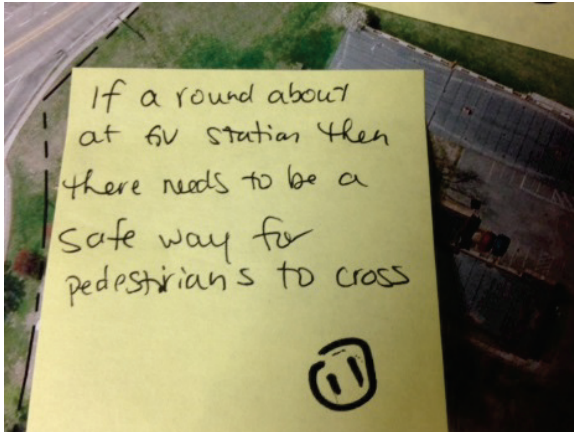 If a round about
at GV station then
there needs to be a
safe way for
pedestirians to cross